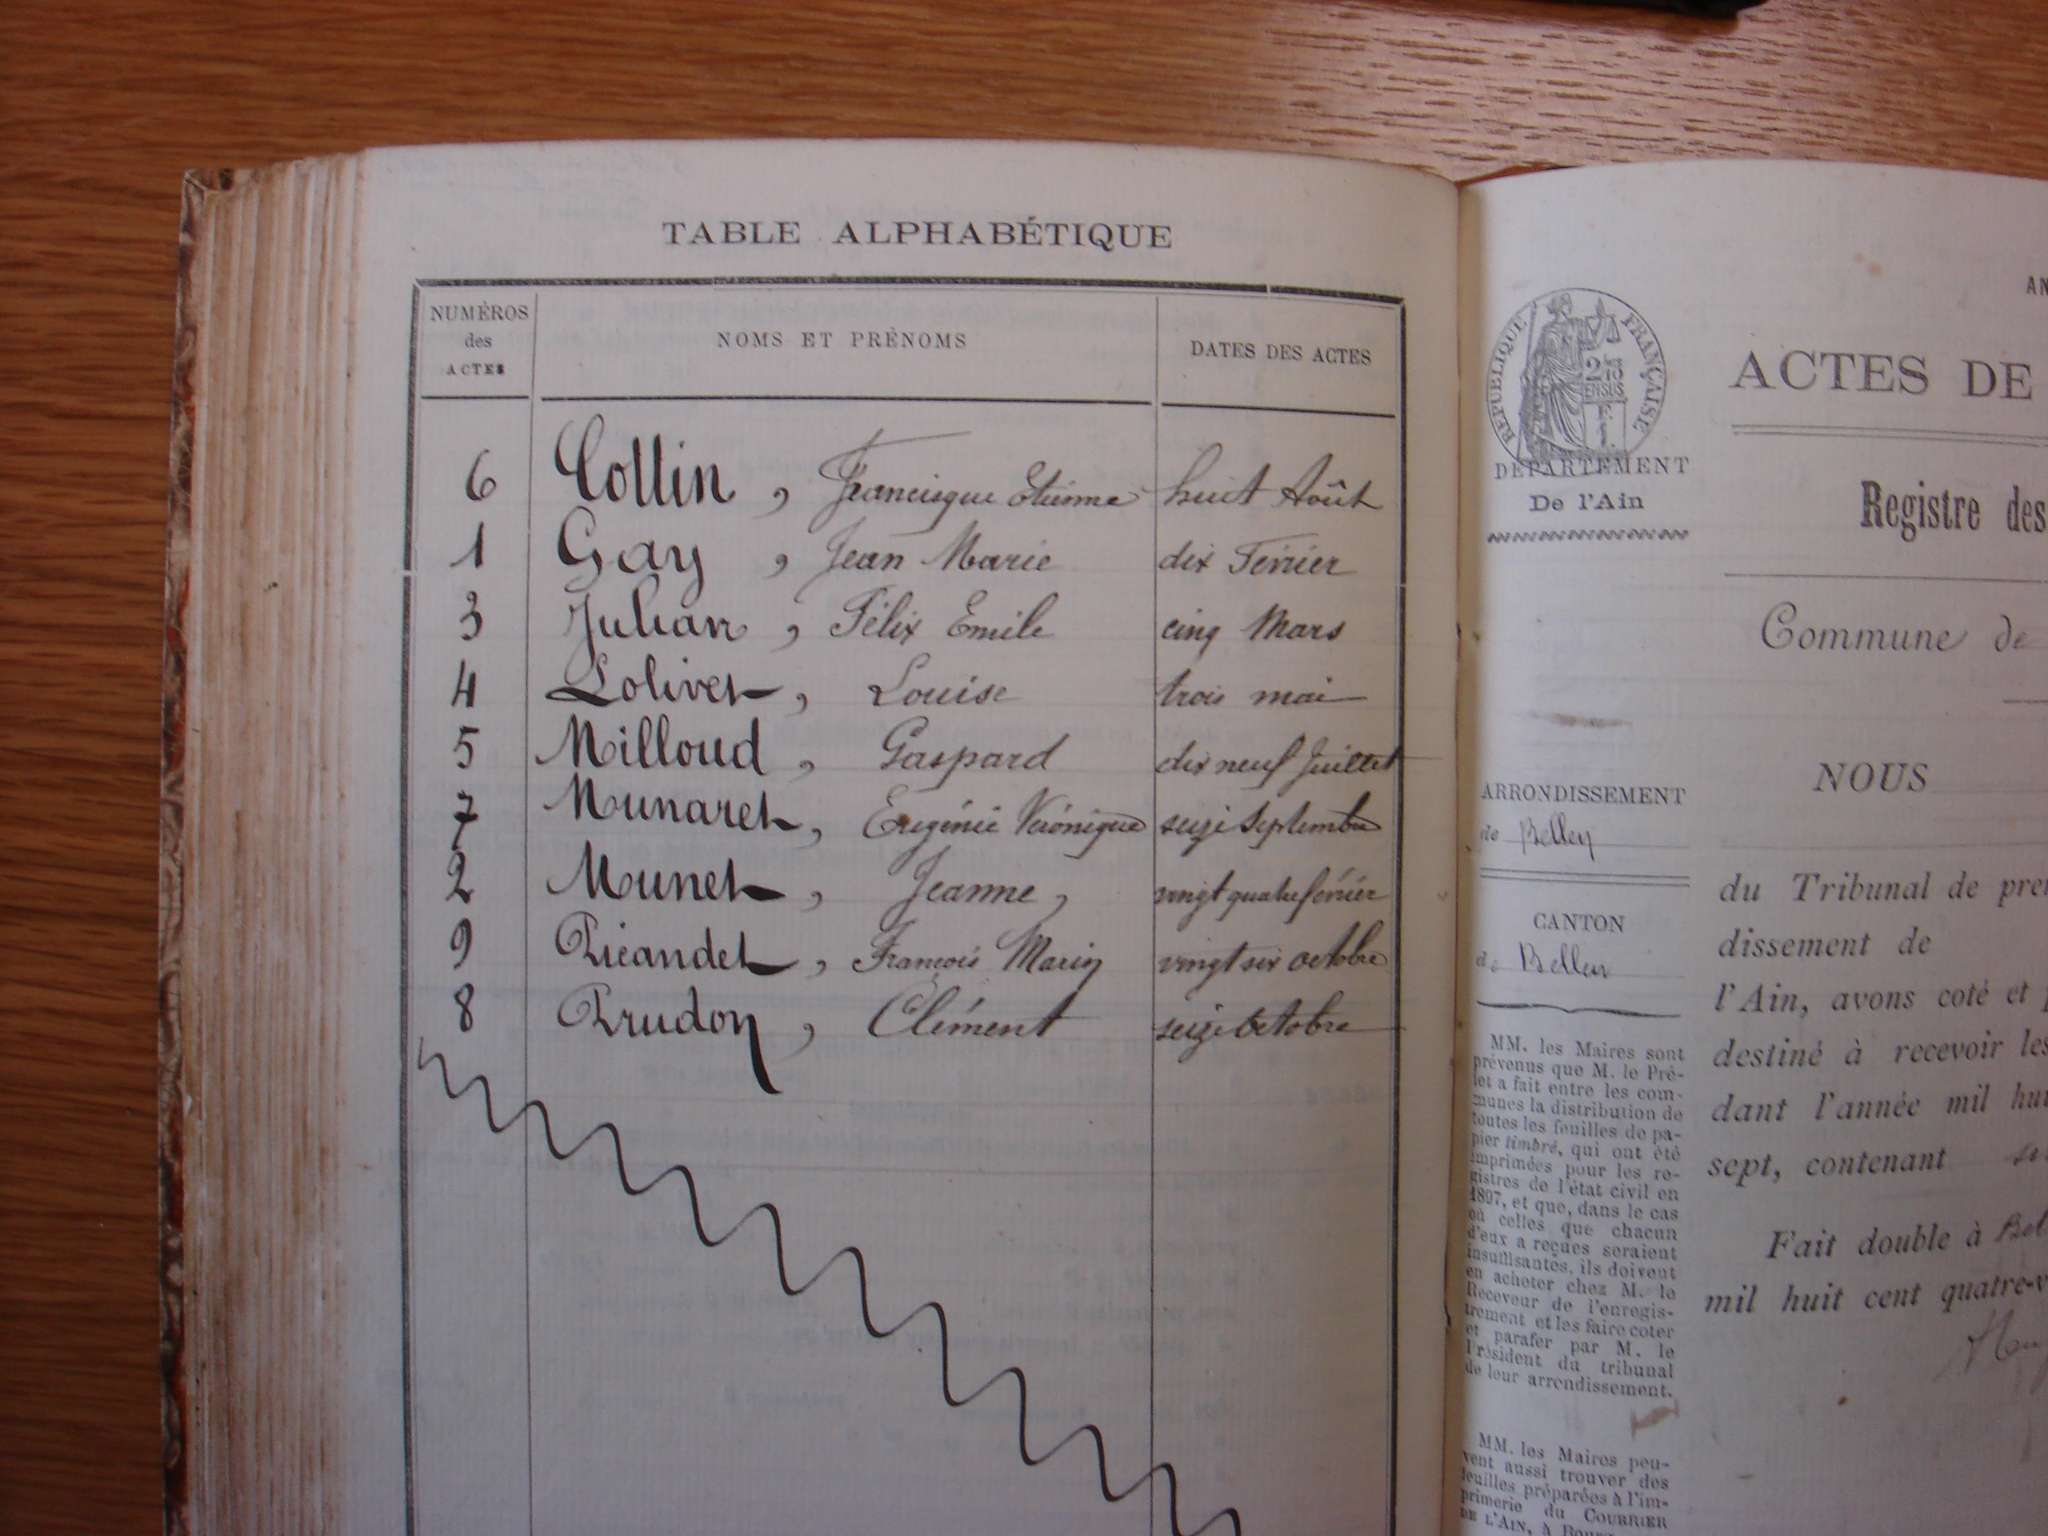 TABLE ALPHABÉTIQUE
NUMÉROS des ACTES
NOMS ET PRÉNOMS
DATES DES ACTES
6 Collin, Francisque Etienne huit Août
1 Gay, Jean Marie dix Février
3 Julian, Félix Emile cinq Mars
4 Lolivet, Louise trois mai
5 Milloud, Gaspard dix neuf Juillet
7 Munaret, Eugénie Véronique seize Septembre
2 Munet, Jeanne, vingt quatre février
9 Picandet, François Marin vingt six octobre
8 Prudon, Clément seize Octobre
AN
RÉPUBLIQUE FRANÇAISE
2/10 EN SUS
ACTES DE
DÉPARTEMENT
De l'Ain
Registre des
Commune de
NOUS
ARRONDISSEMENT
de Belley
CANTON
de Belley
du Tribunal de pre
dissement de
l'Ain, avons coté et p
destiné à recevoir les
dant l'année mil hui
sept, contenant
Fait double à Bel
mil huit cent quatre-v
MM. les Maires sont
prévenus que M. le Pré-
fet a fait entre les com-
munes la distribution de
toutes les feuilles de pa-
pier timbré, qui ont été
imprimées pour les re-
gistres de l'état civil en
1897, et que, dans le cas
où celles que chacun
d'eux a reçues seraient
insuffisantes, ils doivent
en acheter chez M. le
Receveur de l'enregis-
trement et les faire coter
et parafer par M. le
Président du tribunal
de leur arrondissement.
MM. les Maires peu-
vent aussi trouver des
feuilles préparées à l'im-
primerie du COURRIER
DE L'AIN, à Bourg